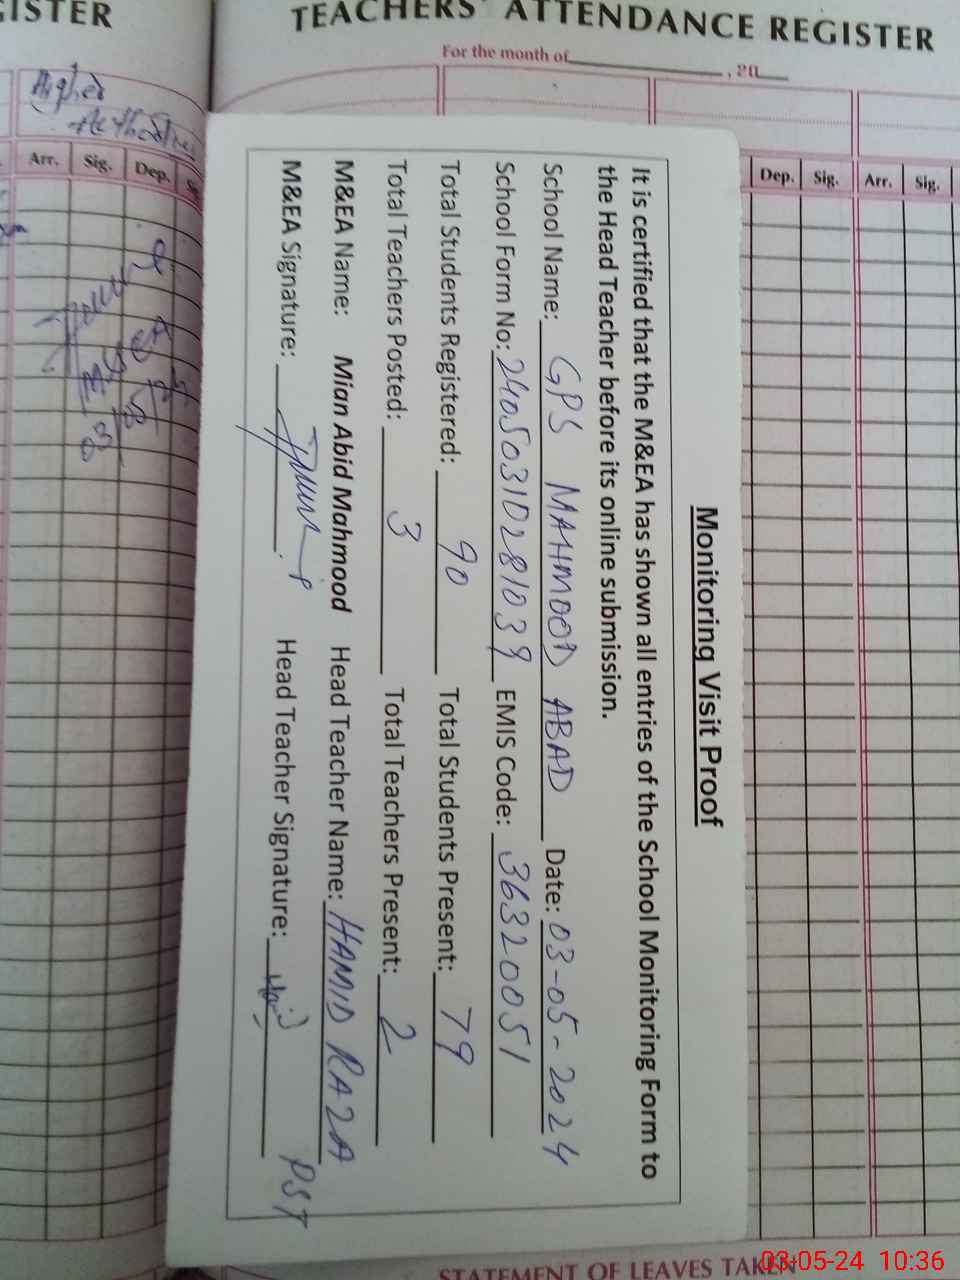 ISTER
TEACHERS' ATTENDANCE REGISTER
For the month of , 20
Higher
Arr. Sig. Dep.
Dep. Sig. Arr. Sig.
Monitoring Visit Proof
It is certified that the M&EA has shown all entries of the School Monitoring Form to
the Head Teacher before its online submission.
School Name: GPS MAHMOOD ABAD Date: 03-05-2024
School Form No: 24050310281039 EMIS Code: 36320051
Total Students Registered: 90 Total Students Present: 79
Total Teachers Posted: 3 Total Teachers Present: 2
M&EA Name: Mian Abid Mahmood Head Teacher Name: HAMID RAZA
M&EA Signature: Head Teacher Signature: PST
STATEMENT OF LEAVES TAKEN
03-05-24 10:36